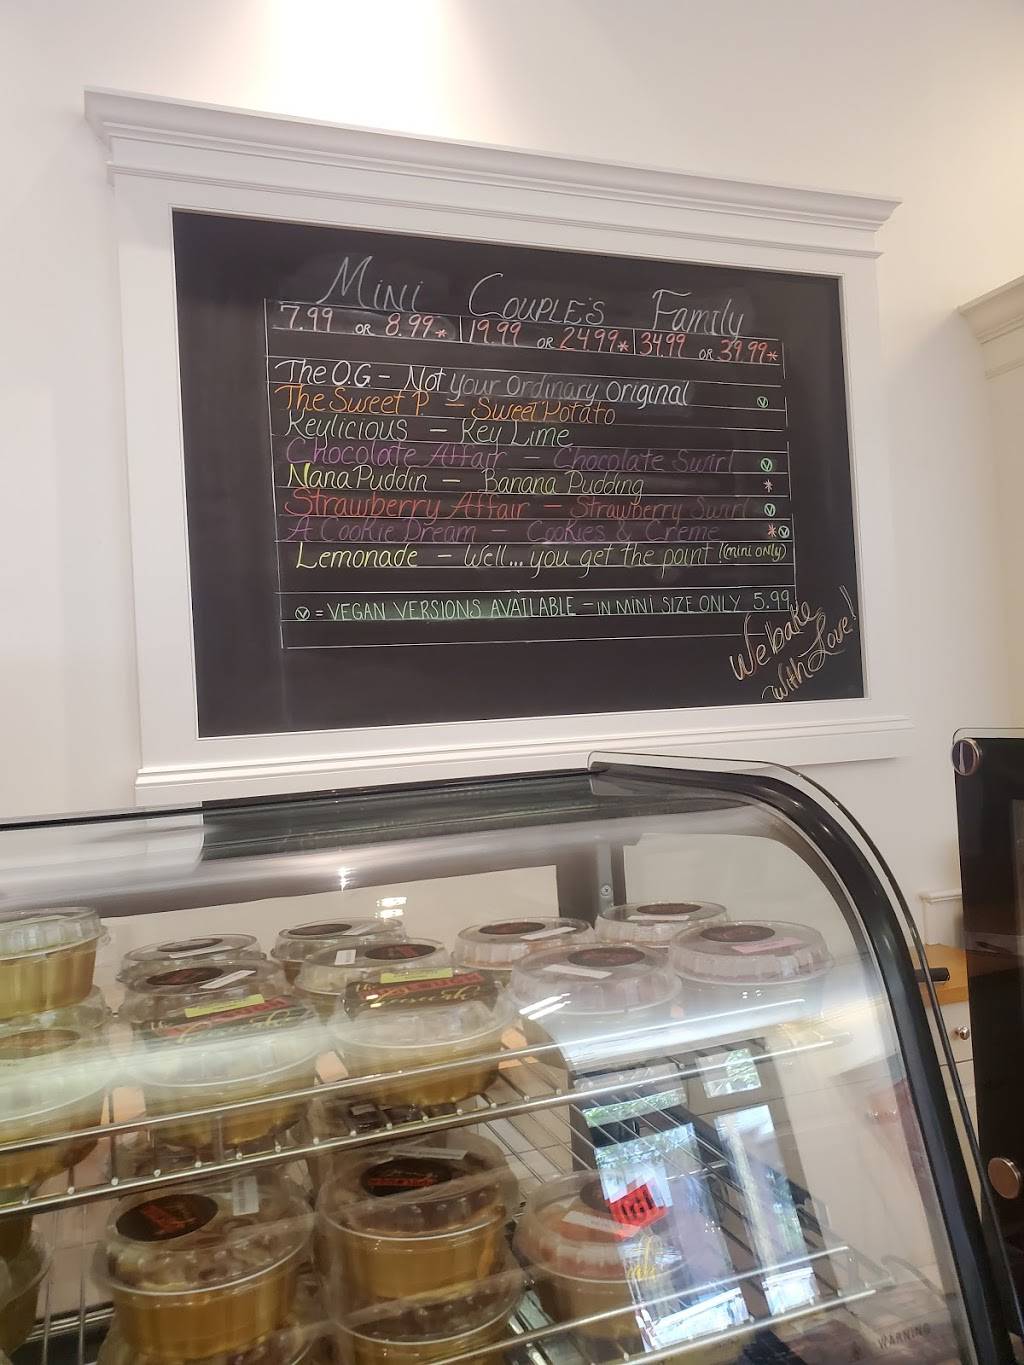 Mini Couple's Family
7.99 or 8.99* 19.99 or 24.99* 34.99 or 39.99*
The O.G - Not your Ordinary Original Ⓥ
The Sweet P. - Sweet Potato
Keylicious - Key Lime
Chocolate Affair - Chocolate Swirl Ⓥ
Nana Puddin - Banana Pudding *
Strawberry Affair - Strawberry Swirl Ⓥ
A Cookie Dream - Cookies & Creme *Ⓥ
Lemonade - Well... you get the point! (mini only)
Ⓥ = VEGAN VERSIONS AVAILABLE - IN MINI SIZE ONLY 5.99
We bake
with Love!
WARNING